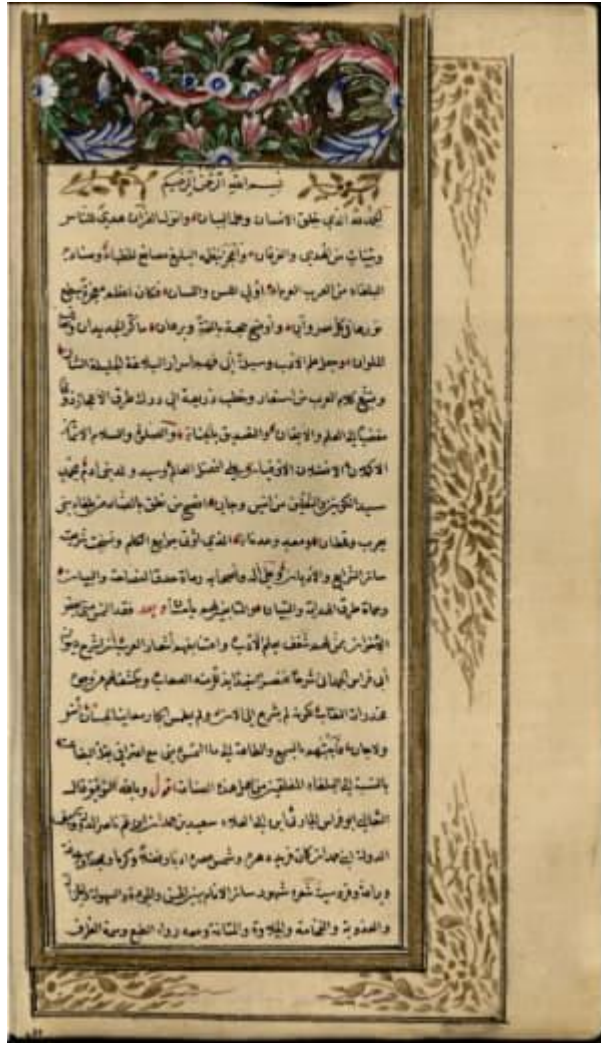 بسم الله الرحمن الرحيم
الحمد لله الذي خلق الانسان وعلمه البيان وانزل القرآن هدى للناس
وبينات من الهدى والفرقان واعجز ببلاغه البليغ مصاقع الخطباء
البلغاء من العرب العرباء اولي اللسن واللسان فكان اعظم معجزة
نورها في كل عصر وآن واوضح حجة بالغة وبرهان ما كر الجديدان
الملوان وجعل علم الادب وسيلة الى فهم اسرار البلاغة الجليلة الشان
وتتبع كلام العرب من اشعار وخطب ذريعة الى درك طرق الاعجاز
مفضيا الى العلم والايقان والتصديق بالجنان والصلوة والسلام
الاكملان الافضلان على افضل العالم وسيد ولد بني آدم محمد
سيد الكونين والثقلين من انس وجان افصح من نطق بالضاد من بني
يعرب وقحطان ومعد وعدنان الذي اوتي جوامع الكلم ونسخت شريعته
سائر الشرائع والاديان وعلى آله واصحابه رماة حدق الفصاحة والبيان
وحماة طرق الهداية والتبيان والتابعين لهم باحسان وبعد فقد التمس مني بعض
الاخوان ممن لهم شغف بعلم الادب واعتنا بفهم اشعار العرب ان اشرح ديوان
ابي فراس الحمداني شرحا مختصرا يذلل منه الصعاب ويكشف لهم عن وجوه
مخدراته النقاب لكونه لم يشرح الى الان ولم يطمث ابكار معانيه الحسان انس
ولا جان فاجبتهم بالسمع والطاعة الى ما التمسوه مني مع اعترافي بقلة البضاعة
بالنسبة الى البلغاء المفلقين من اهل هذه الصناعة فاقول وبالله التوفيق قال
الثعالبي ابو فراس الحارث بن ابي العلاء سعيد بن حمدان ابن عم ناصر الدولة وسيف
الدولة ابن حمدان كان فريد دهره وشمس عصره ادبا وفضلا وكرما ومجدا وبلاغة
وبراعة وفروسية شعره مشهور سائر بين الحسن والجودة والسهولة
والعذوبة والفخامة والحلاوة والمتانة ومعه رواء الطبع وسمة الظرف